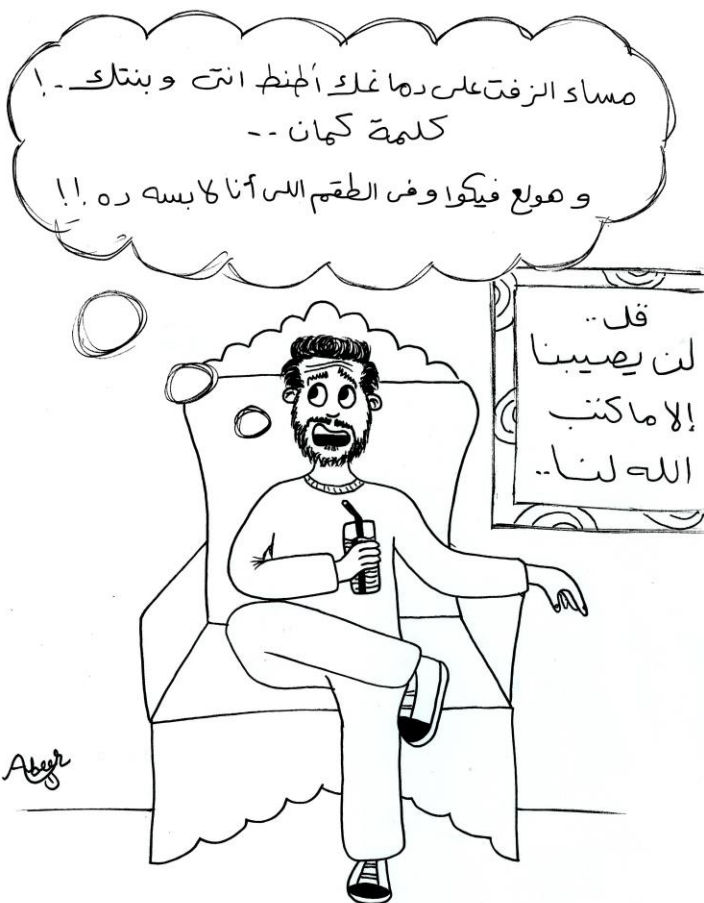 مساء الزفت على دماغك أطنط انتى وبنتك..!
كلمة كمان --
و هولع فيكوا وفى الطقم اللى أنا لابسه ده !!
قل..
لن يصيبنا
إلا ما كتب
الله لنا..
Abeer